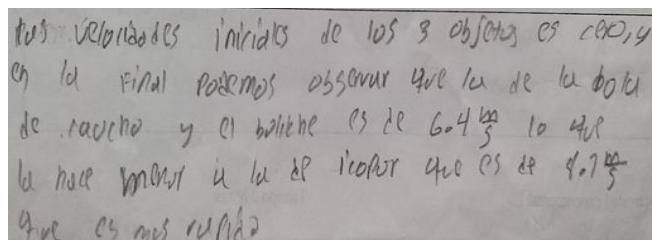 las velocidades iniciales de los 3 objetos es cero, y
en la Final Podemos observar que la de la bola
de caucho y el boliche es de 6.4 m/s lo que
la hace menor a la de icopor que es de 8.7 m/s
que es mas rapido